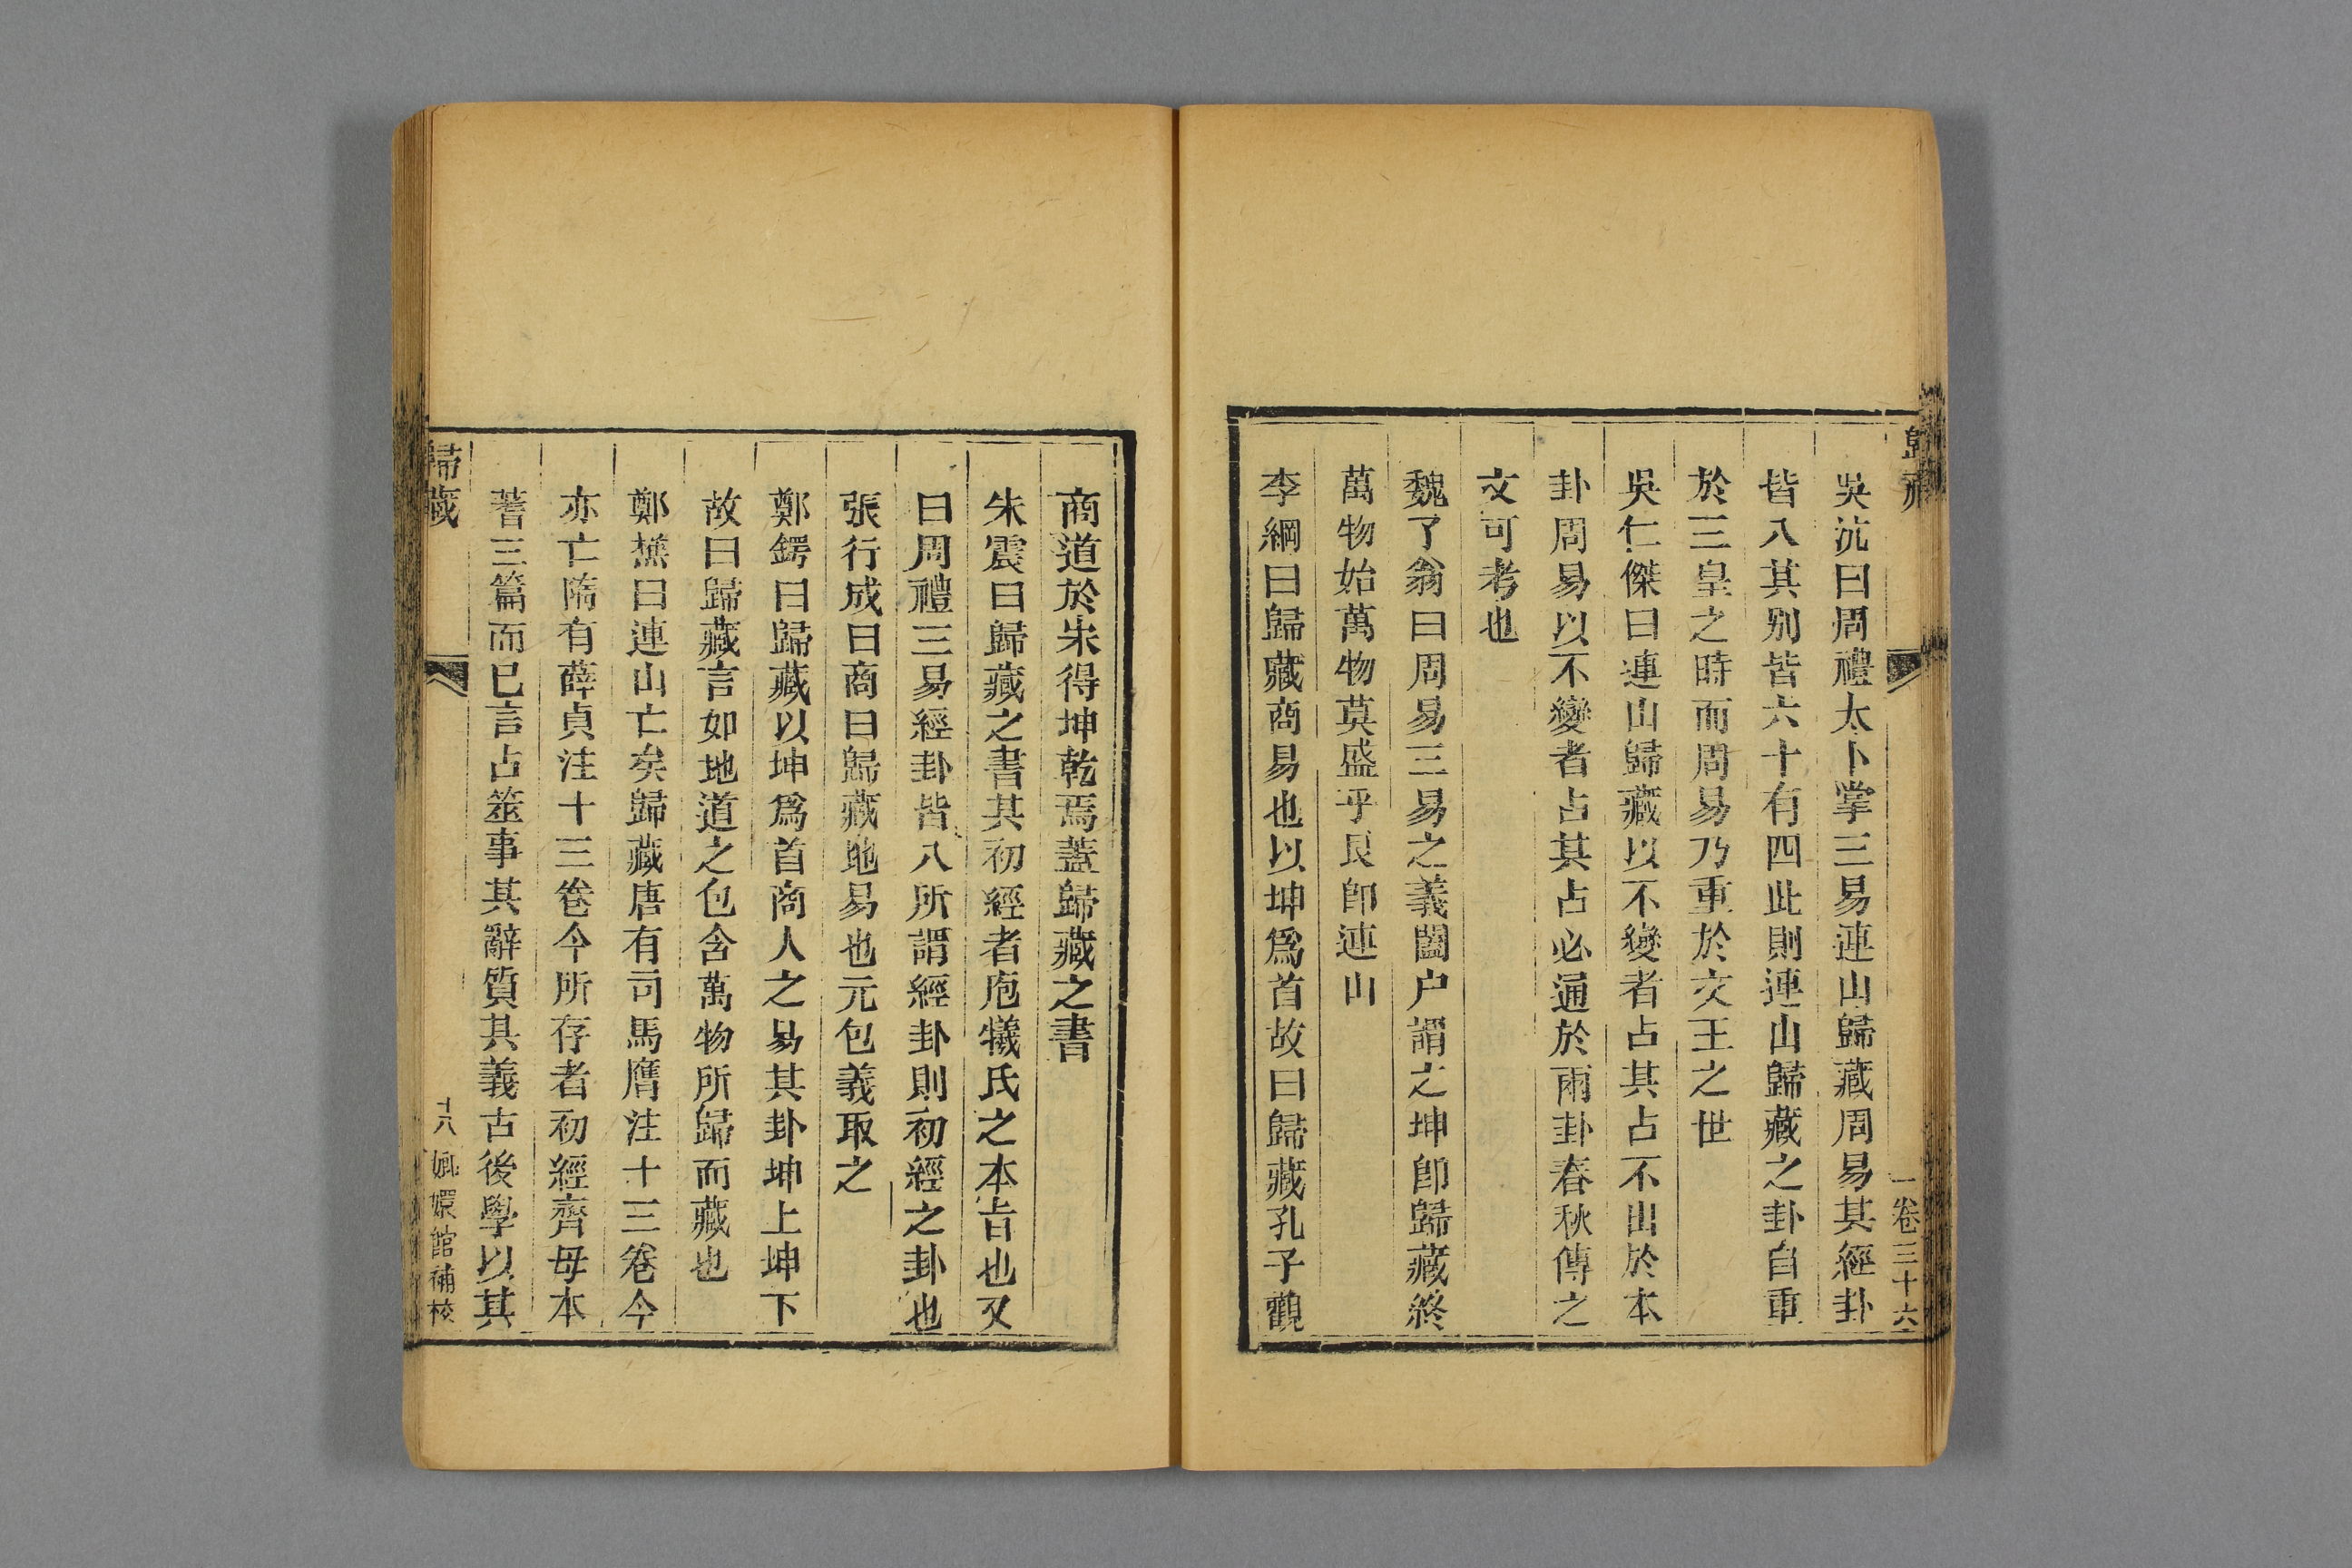 歸藏
一卷三十六
吳沆曰周禮太卜掌三易連山歸藏周易其經卦
皆八其别皆六十有四此則連山歸藏之卦自重
於三皇之時而周易乃重於文王之世
吳仁傑曰連山歸藏以不變者占其占不出於本
卦周易以不變者占其占必通於兩卦春秋傳之
文可考也
魏了翁曰周易三易之義闔户謂之坤卽歸藏終
萬物始萬物莫盛乎艮卽連山
李綱曰歸藏商易也以坤爲首故曰歸藏孔子觀
商道於宋得坤乾焉蓋歸藏之書
朱震曰歸藏之書其初經者庖犧氏之本旨也又
曰周禮三易經卦皆八所謂經卦則初經之卦也
張行成曰商曰歸藏地易也元包義取之
鄭鍔曰歸藏以坤爲首商人之易其卦坤上坤下
故曰歸藏言如地道之包含萬物所歸而藏也
鄭樵曰連山亡矣歸藏唐有司馬膺注十三卷今
亦亡隋有薛貞注十三卷今所存者初經齊母本
蓍三篇而已言占筮事其辭質其義古後學以其
歸藏
十八
嫏嬛館補校